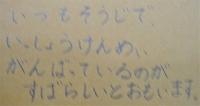 いつもそうじで、
いっしょうけんめい
がんばっているのが
すばらしいとおもいます。